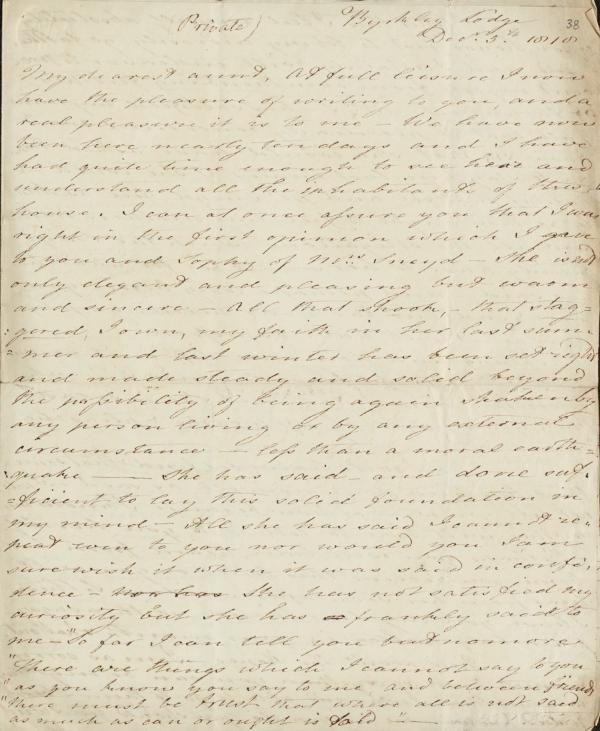 (Private) Byrkley Lodge 38
Decr. 3d. 1818
My dearest aunt, At full leisure I now
have the pleasure of writing to you, and a
real pleasure it is to me – We have now
been here nearly ten days and I have
had quite time enough to see hear and
understand all the inhabitants of this
house. I can at once assure you that I was
right in the first opinion which I gave
to you and Sophy of Mrs. Sneyd – She is not
only elegant and pleasing but warm
and sincere – All that shook, – that stag=
:gered, I own, my faith in her last sum=
=mer and last winter has been set right
and made steady and solid beyond
the possibility of being again shaken by
any person living or by any external
circumstance – less than a moral earth=
quake — She has said and done suf=
=ficient to lay this solid foundation in
my mind – All she has said I cannot re=
peat even to you nor would you I am
sure wish it when it was said in confi=
dence – Nor has She has not satisfied my
curiosity but she has frankly said to
me – "So far I can tell you but no more
"There are things which I cannot say to you
"as you know you say to me and between friends
"there must be trust that where all is not said
as much as can or ought is said" —